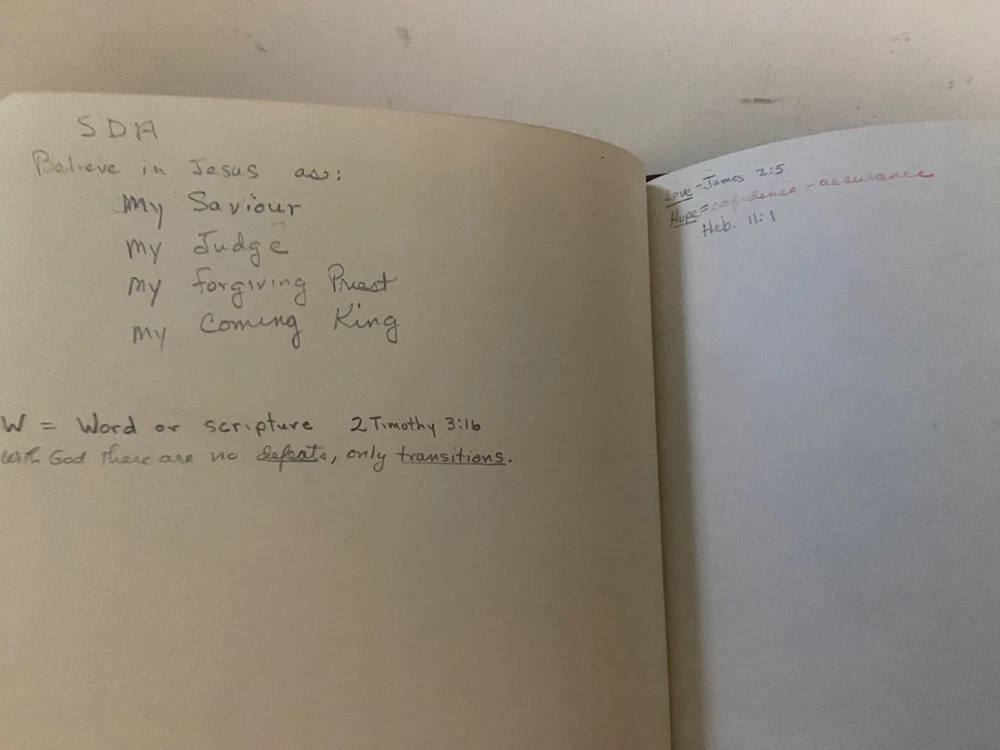 SDA
Believe in Jesus as:
My Saviour
my Judge
my forgiving Priest
my Coming King
W = Word or scripture 2 Timothy 3:16
With God there are no defeats, only transitions.
Love - James 2:5
Hope = confidence - assurance
Heb. 11:1